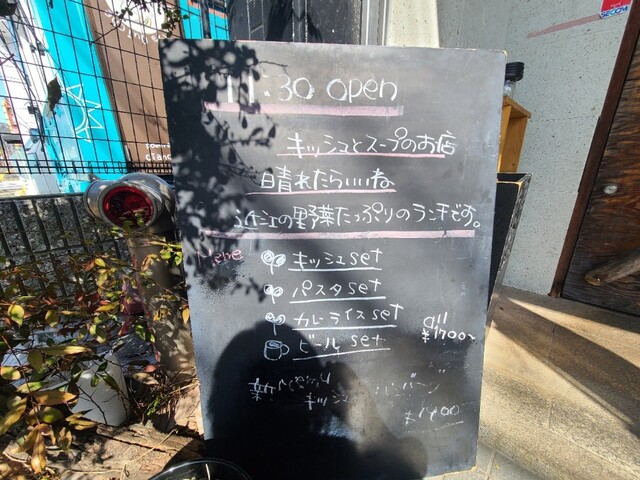 11:30 open
キッシュとスープのお店
晴れたらいいね
近江の野菜たっぷりのランチです。
キッシュset
パスタset
カレーライスset
ビールset
all
¥1700~
新
キッシュ
SECOM